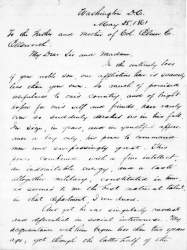 Washington D.C.
May 25. 1861
To the Father and Mother of Col. Elmer E.
Ellsworth:
My dear Sir and Madam,
In the untimely loss
of your noble son, our affliction here, is scarcely
less than your own. So much of promised
usefulness to one's country, and of bright
hopes for one's self and friends, have rarely
been so suddenly dashed, as in his fall.
In size, in years, and in youthful appear-
ance, a boy only, his power to command
men, was surpassingly great. This
power, combined with a fine intellect,
an indomitable energy, and a taste
altogether military, constituted in him,
as seemed to me, the best natural talent,
in that department, I ever knew.
And yet he was singularly modest
and deferential in social intercourse. My
acquaintance with him began less than two years
ago; yet through the latter half of the